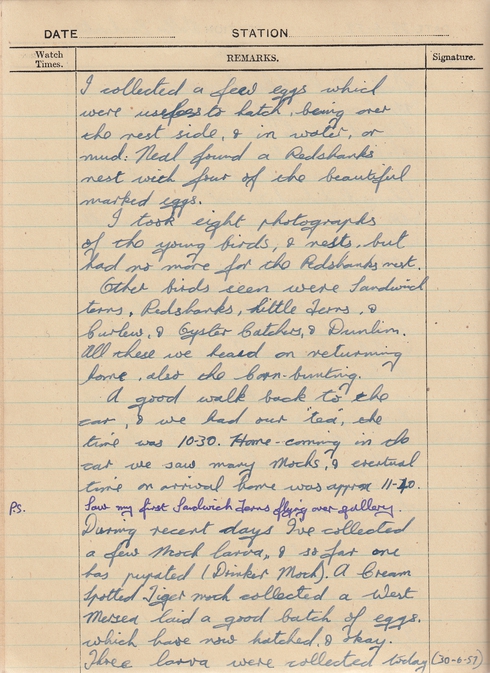 DATE STATION
Watch Times. REMARKS. Signature.
I collected a few eggs which
were useless to hatch, being over
the nest side, & in water, or
mud. Neal found a Redshanks
nest with four of the beautiful
marked eggs.
I took eight photographs
of the young birds, & nests, but
had no more for the Redshanks nest.
Other birds seen were Sandwich
terns, Redshanks, Little Terns, &
Curlew, & Oyster Catchers, & Dunlin.
All these we heard on returning
home, also the Corn-bunting.
A good walk back to the
car, & we had our "tea", the
time was 10-30. Home-coming in the
car we saw many Moths, & eventual
time on arrival home was approx 11-40.
P.S. Saw my first Sandwich Terns flying over gullery.
During recent days I've collected
a few Moth larva, & so far one
has pupated (Drinker Moth). A Cream
Spotted Tiger moth collected a West
Mersea laid a good batch of eggs.
which have now hatched, & okay.
Three larva were collected today (30-6-57)